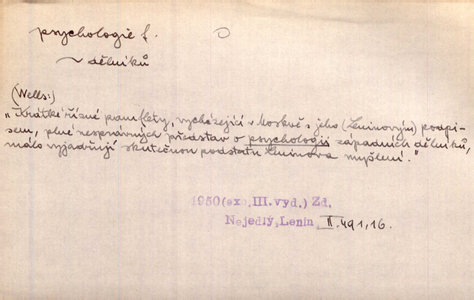 psychologie f.
~ dělníků
(Wells:)
"Krátké řízné pamflety, vycházející v Moskvě s jeho (Leninovým) podpi-
sem, plné nesprávných představ o psychologii západních dělníků,
málo vyjadřují skutečnou podstatu Leninova myšlení."
1950(exc.III.vyd.) Zd.
Nejedlý, Lenin, II. 491,16.